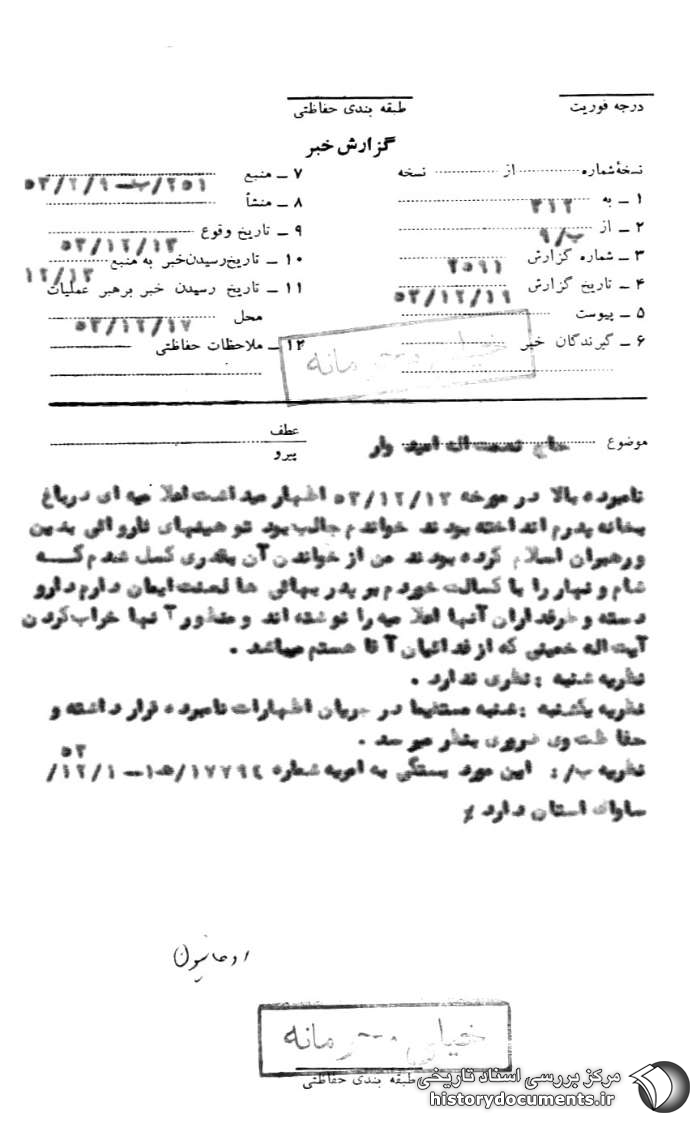 درجه فوریت
طبقه بندی حفاظتی
گزارش خبر
نسخهٔ شماره از نسخه
۱ ــ به ۳۱۲
۲ ــ از ۹/ب
۳ ــ شماره گزارش ۲۵۹۱
۴ ــ تاریخ گزارش ۵۳/۱۲/۱۹
۵ ــ پیوست
۶ ــ گیرندگان خبر
۷ ــ منبع
۸ ــ منشأ
۹ ــ تاریخ وقوع ۵۳/۱۲/۱۳
۱۰ ــ تاریخ رسیدن خبر به منبع ۱۲/۱۳
۱۱ ــ تاریخ رسیدن خبر برهبر عملیات
محل ۵۳/۱۲/۱۷
۱۲ ــ ملاحظات حفاظتی
خیلی محرمانه
موضوع حاج نعمت اله امید وار
عطف
پیرو
نامبرده بالا در مورخه ۵۳/۱۲/۱۳ اظهار میداشت اعلا میه ای درباغ
بخانه پدرم انداخته بودند خواندم جالب بود توهینهای ناروائی بدین
ورهبران اسلام کرده بودند من از خواندن آن بقدری کسل شدم کــه
شام و نهار را با کسالت خوردم بر پدر بهائی ها لعنت ایمان دارم دارو
دسته و طرفداران آنها اعلا میه را نوشته اند و منظور آنها خراب کردن
آیت اله خمینی که از فدائیان آقا هستم میباشد .
نظریه شنبه : نظری ندارد .
نظریه یکشنبه : شنبه مستقیما در جریان اظهارات نامبرده قرار داشته و
حفاظت وی ضروری بنظر میرسد .
نظریه ب/ : این مورد بستگی به امریه شماره ۱۵/۱۷۷۹۴ــ۱۲/۱/
۵۳
ساواك استان دارد ٪
روحانیون
خیلی محرمانه
طبقه بندی حفاظتی
مرکز بررسی اسناد تاریخی
historydocuments.ir